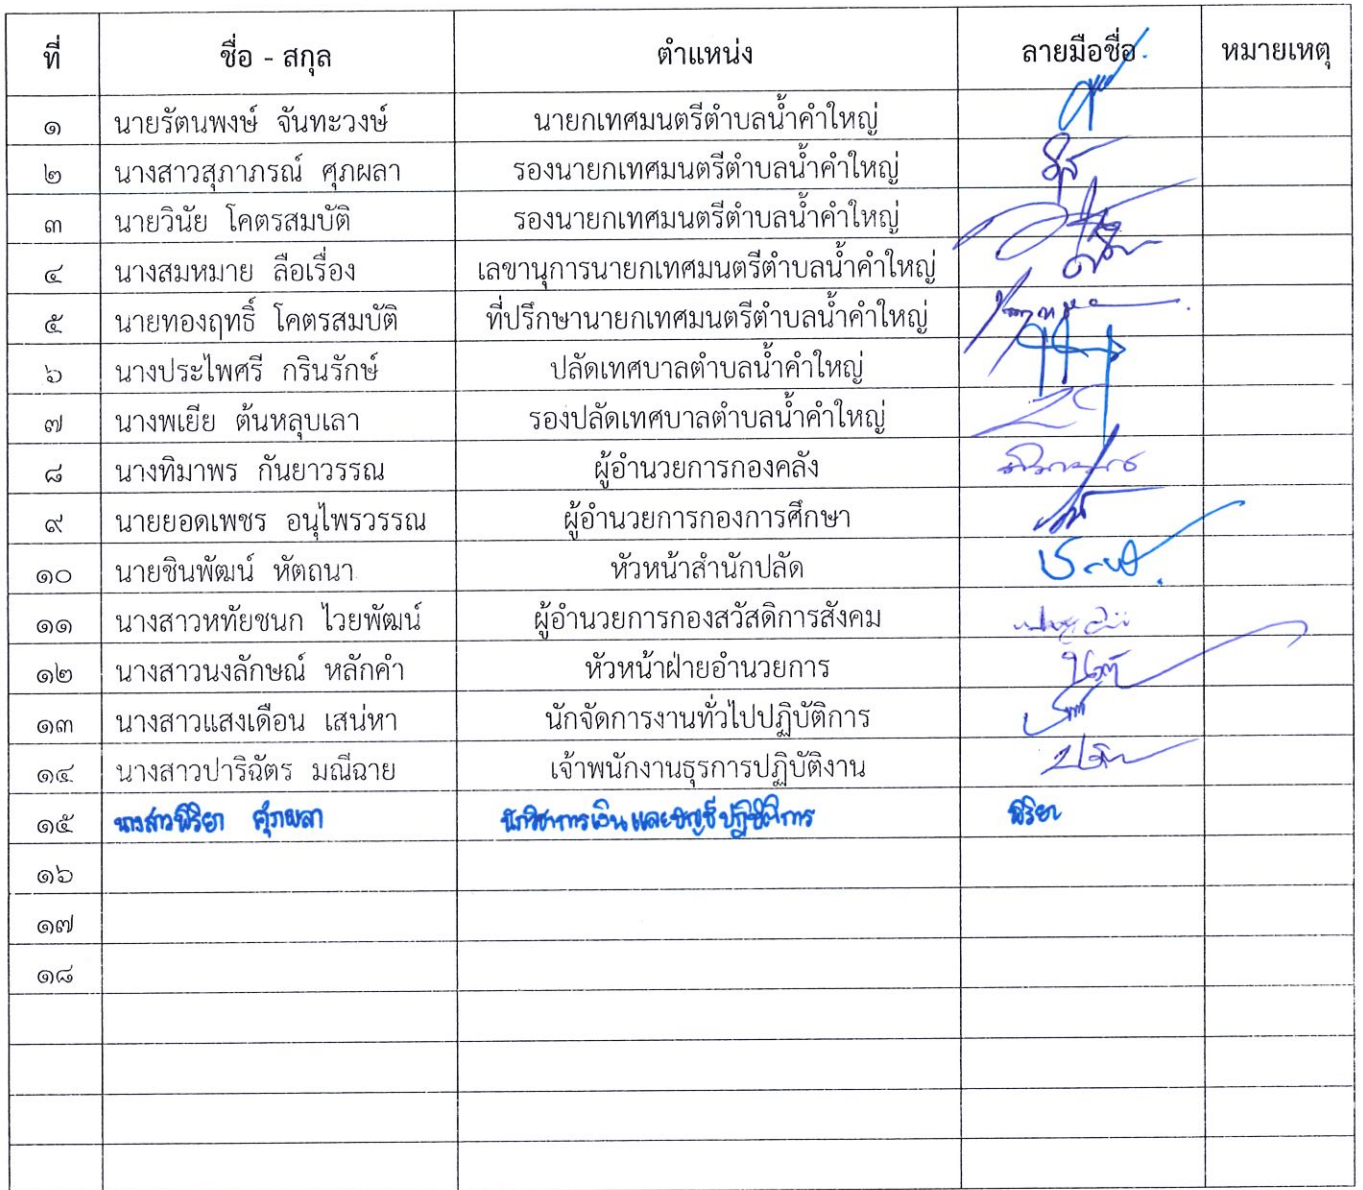 ที่ ชื่อ - สกุล ตำแหน่ง ลายมือชื่อ หมายเหตุ
๑ นายรัตนพงษ์ จันทะวงษ์ นายกเทศมนตรีตำบลน้ำคำใหญ่
๒ นางสาวสุภาภรณ์ ศุภผลา รองนายกเทศมนตรีตำบลน้ำคำใหญ่
๓ นายวินัย โคตรสมบัติ รองนายกเทศมนตรีตำบลน้ำคำใหญ่
๔ นางสมหมาย ลือเรื่อง เลขานุการนายกเทศมนตรีตำบลน้ำคำใหญ่
๕ นายทองฤทธิ์ โคตรสมบัติ ที่ปรึกษานายกเทศมนตรีตำบลน้ำคำใหญ่
๖ นางประไพศรี กรินรักษ์ ปลัดเทศบาลตำบลน้ำคำใหญ่
๗ นางพเยีย ต้นหลุบเลา รองปลัดเทศบาลตำบลน้ำคำใหญ่
๘ นางทิมาพร กันยาวรรณ ผู้อำนวยการกองคลัง
๙ นายยอดเพชร อนุไพรวรรณ ผู้อำนวยการกองการศึกษา
๑๐ นายชินพัฒน์ หัตถนา หัวหน้าสำนักปลัด
๑๑ นางสาวหทัยชนก ไวยพัฒน์ ผู้อำนวยการกองสวัสดิการสังคม
๑๒ นางสาวนงลักษณ์ หลักคำ หัวหน้าฝ่ายอำนวยการ
๑๓ นางสาวแสงเดือน เสน่หา นักจัดการงานทั่วไปปฏิบัติการ
๑๔ นางสาวปาริฉัตร มณีฉาย เจ้าพนักงานธุรการปฏิบัติงาน
๑๕ นางสาวพิริยา ศุภผลา นักวิชาการเงินและบัญชีปฏิบัติการ พิริยา
๑๖
๑๗
๑๘